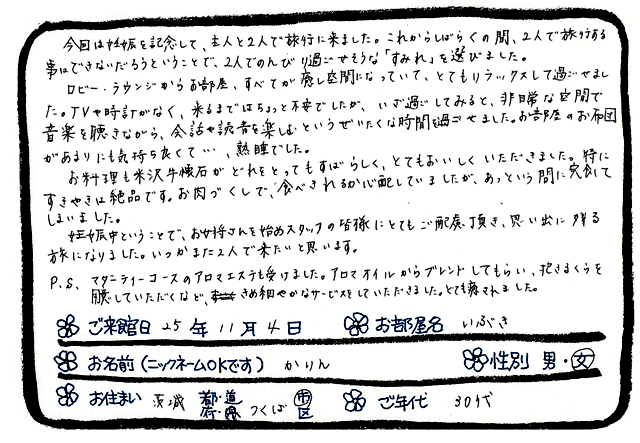 今回は妊娠を記念して、主人と2人で旅行に来ました。これからしばらくの間、2人で旅行する
事はできないだろうということで、2人でのんびり過ごせそうな「すみれ」を選びました。
ロビー・ラウンジからお部屋、すべてが癒し空間になっていて、とてもリラックスして過ごせまし
た。TVや時計がなく、来るまではちょっと不安でしたが、いざ過ごしてみると、非日常な空間で
音楽を聴きながら、会話や読書を楽しむというぜいたくな時間を過ごせました。お部屋のお布団
があまりにも気持ち良くて…、熟睡でした。
お料理も米沢牛懐石がどれをとってもすばらしく、とてもおいしくいただきました。特に
すきやきは絶品です。お肉づくしで、食べきれるか心配していましたが、あっという間に完食して
しまいました。
妊娠中ということで、お女将さんを始めスタッフの皆様にとてもご配慮頂き、思い出に残る
旅になりました。いつかまた2人で来たいと思います。
P.S. マタニティーコースのアロマエステも受けました。アロマオイルからブレンドしてもらい、抱きまくらを
用意していただくなど、きめ細やかなサービスをしていただきました。とても癒されました。
ご来館日 25年 11月 4日 お部屋名 いぶき
お名前(ニックネームOKです) かりん 性別 男・女
お住まい 茨城 都・道 府・県 つくば 市 区 ご年代 30代